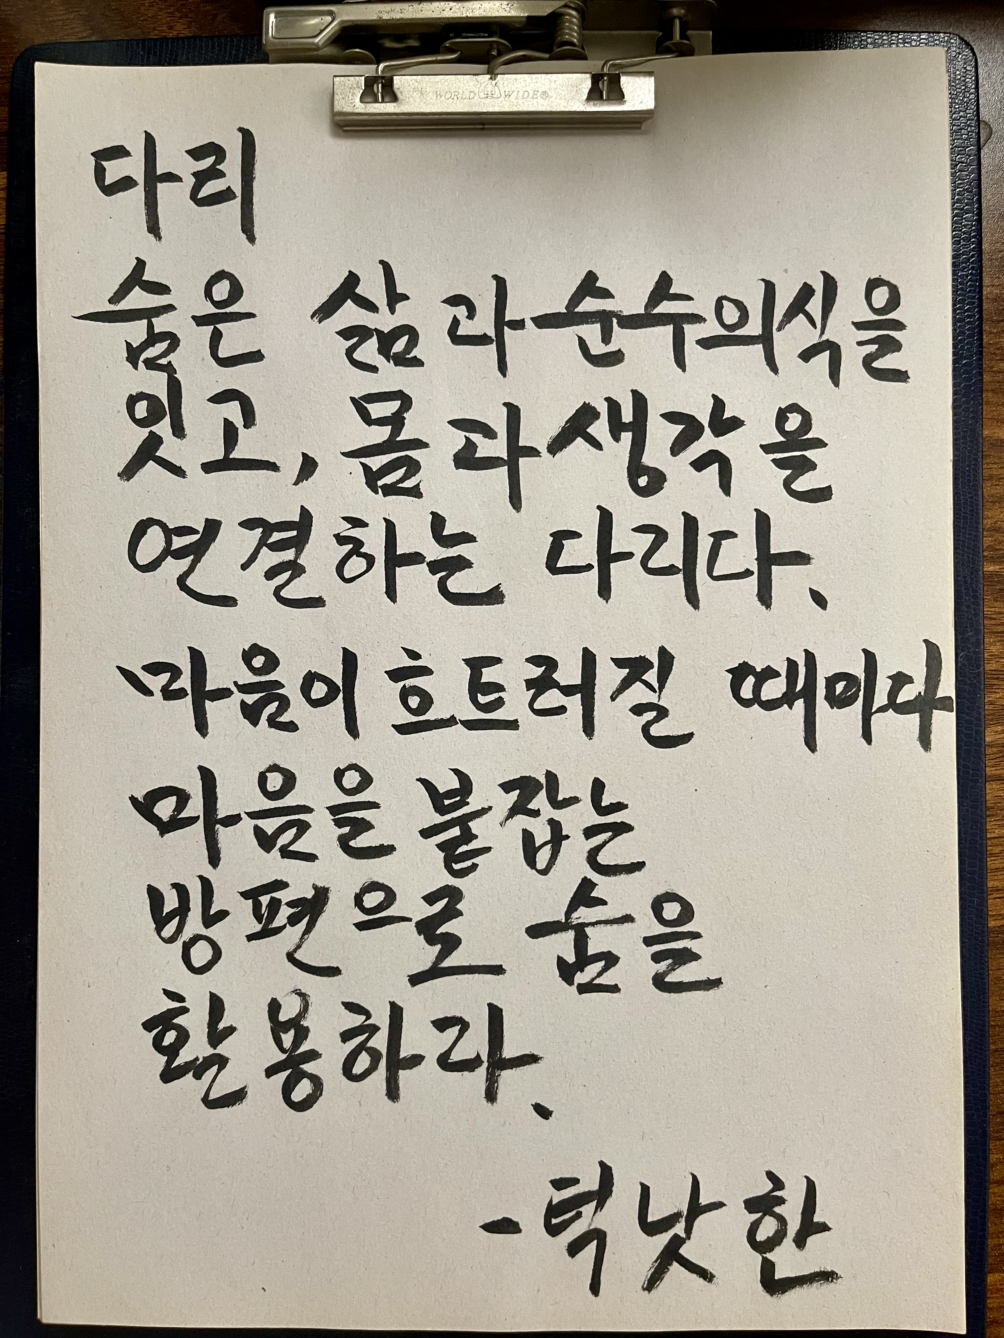 WORLD WIDE®
다리
숨은 삶과 순수의식을
잇고, 몸과 생각을
연결하는 다리다.
마음이 흐트러질 때마다
마음을 붙잡는
방편으로 숨을
활용하라.
-틱낫한